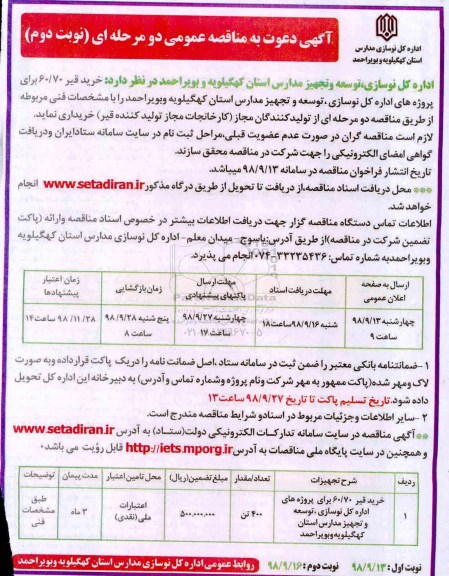 اداره کل نوسازی مدارس
استان کهگیلویه وبویراحمد
آگهی دعوت به مناقصه عمومی دو مرحله ای (نوبت دوم)
اداره کل نوسازی،توسعه وتجهیز مدارس استان کهگیلویه و بویراحمد در نظر دارد: خرید قیر ۶۰/۷۰ برای
پروژه های اداره کل نوسازی ،توسعه و تجهیز مدارس استان کهگیلویه وبویراحمد را با مشخصات فنی مربوطه
از طریق مناقصه دو مرحله ای از تولیدکنندگان مجاز (کارخانجات مجاز تولید کننده قیر) خریداری نماید.
لازم است مناقصه گران در صورت عدم عضویت قبلی،مراحل ثبت نام در سایت سامانه ستادایران ودریافت
گواهی امضای الکترونیکی را جهت شرکت در مناقصه محقق سازند.
تاریخ انتشار فراخوان مناقصه در سامانه ۹۸/۹/۱۳ میباشد.
*** محل دریافت اسناد مناقصه،از دریافت تا تحویل از طریق درگاه مذکور www.setadiran.ir انجام
خواهد شد.
اطلاعات تماس دستگاه مناقصه گزار جهت دریافت اطلاعات بیشتر در خصوص اسناد مناقصه وارائه (پاکت
تضمین شرکت در مناقصه)از طریق آدرس:یاسوج -میدان معلم- اداره کل نوسازی مدارس استان کهگیلویه
وبویراحمدبه شماره تماس: ۳۳۲۳۵۴۳۶-۰۷۴ انجام می پذیرد.
ارسال به صفحه اعلان عمومی | مهلت دریافت اسناد | مهلت ارسال پاکتهای پیشنهادی | زمان بازگشایی | زمان اعتبار پیشنهادها
چهارشنبه ۹۸/۹/۱۳ ساعت ۹ | شنبه ۹۸/۹/۱۶ ساعت ۱۸ | چهارشنبه ۹۸/۹/۲۷ ساعت ۱۷ | پنج شنبه ۹۸/۹/۲۸ ساعت ۸ | ۹۸/۱۱/۲۸ ساعت ۱۴
۱-ضمانتنامه بانکی معتبر را ضمن ثبت در سامانه ستاد ،اصل ضمانت نامه را دریک پاکت قرار داده وبه صورت
لاک ومهر شده(پاکت ممهور به مهر شرکت ونام پروژه وشماره تماس وآدرس) به دبیرخانه این اداره کل تحویل
داده شود. تاریخ تسلیم پاکت تا تاریخ ۹۸/۹/۲۷ ساعت ۱۳
۲-سایر اطلاعات وجزئیات مربوط در اسنادو شرایط مناقصه مندرج است.
** آگهی مناقصه در سایت سامانه تدارکات الکترونیکی دولت(ستاد) به آدرس www.setadiran.ir
و همچنین در سایت پایگاه ملی مناقصات به آدرس http://iets.mporg.ir قابل رؤیت می باشد.
ردیف | شرح تجهیزات | تعداد/مقدار | مبلغ تضمین(ریال) | محل تامین اعتبار | مدت پیمان | توضیحات
۱ | خرید قیر ۶۰/۷۰ برای پروژه های اداره کل نوسازی ،توسعه و تجهیز مدارس استان کهگیلویه وبویراحمد | ۴۰۰ تن | ۵۰۰,۰۰۰,۰۰۰ | اعتبارات ملی(نقدی) | ۳ ماه | طبق مشخصات فنی
نوبت اول: ۹۸/۹/۱۳ نوبت دوم: ۹۸/۹/۱۶ روابط عمومی اداره کل نوسازی مدارس استان کهگیلویه وبویراحمد